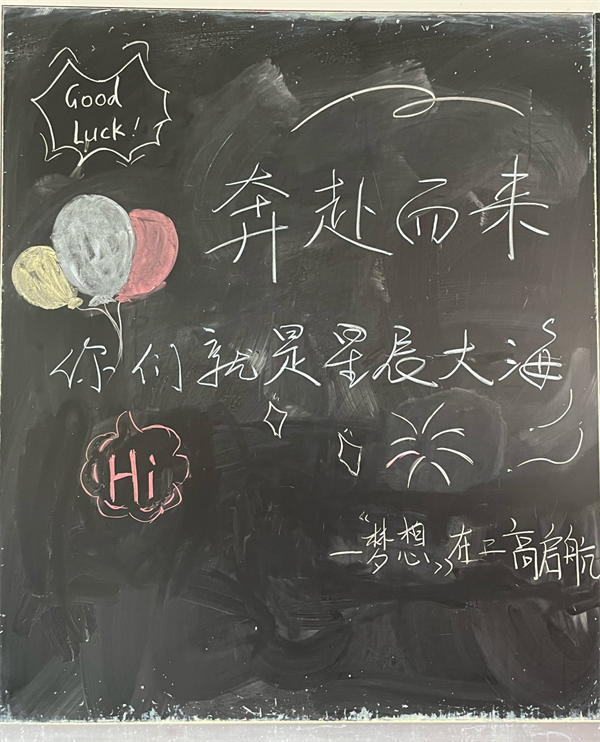 Good
Luck!
奔赴而来
你们就是星辰大海
Hi
—“梦想”在二高启航